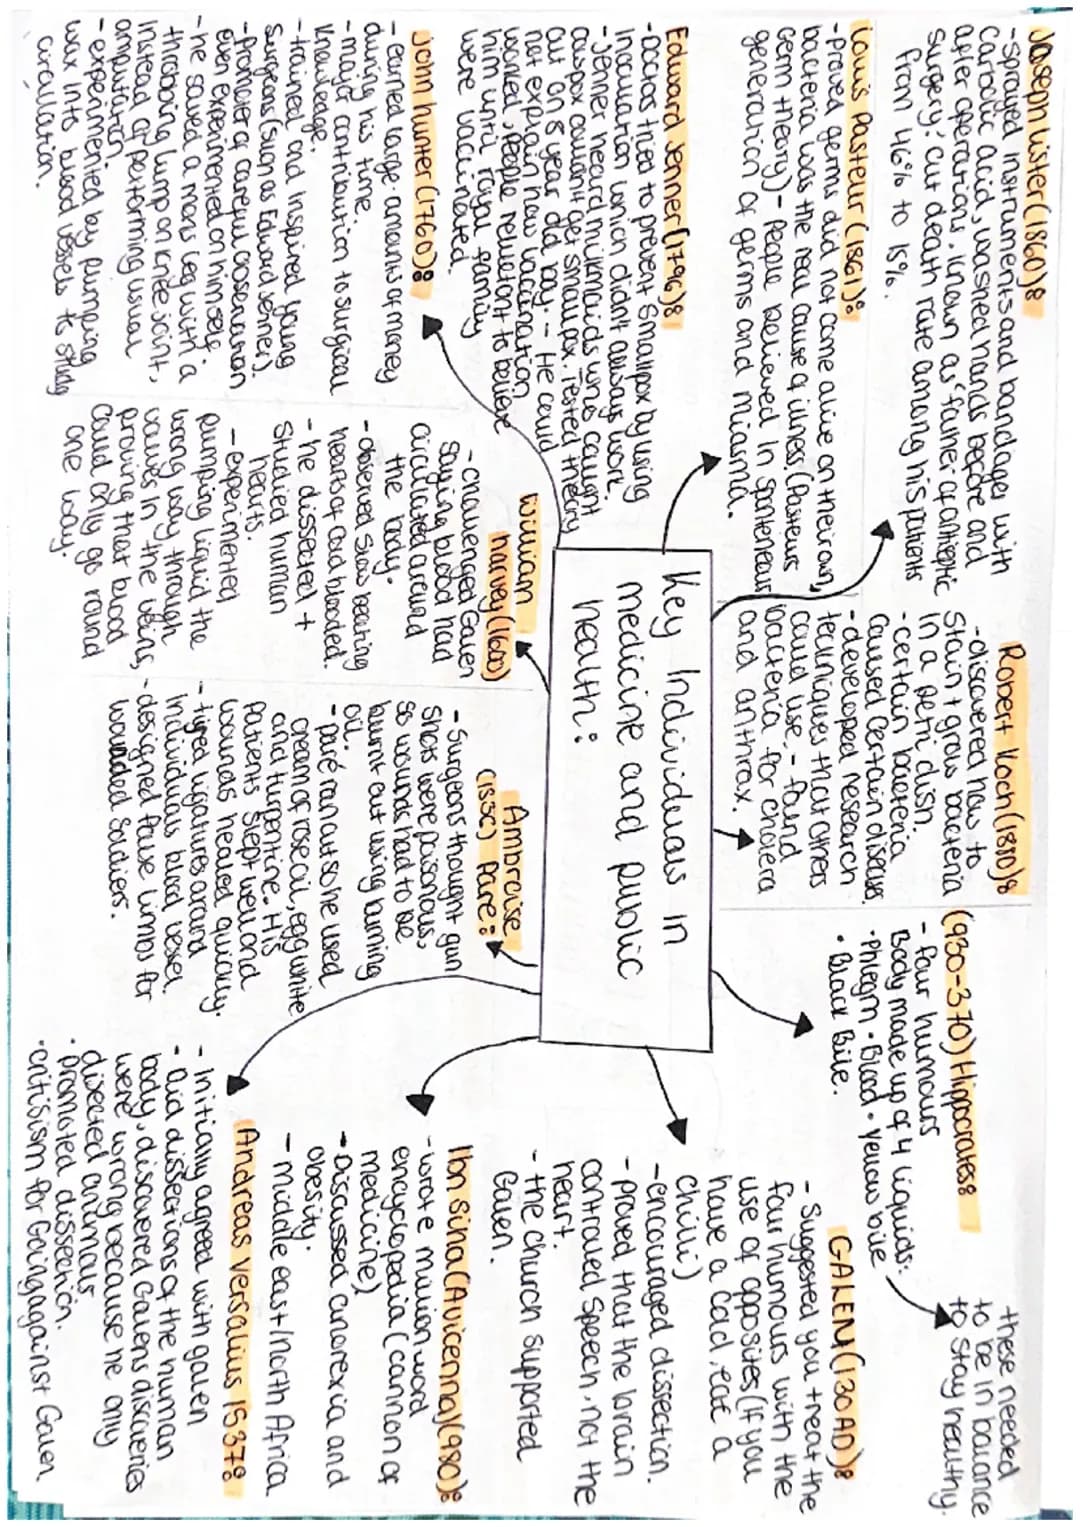 Joseph lister (1860):
- sprayed instruments and bandages with
carbolic acid, washed hands before and
after operations. known as 'father of antiseptic
surgery': cut death rate among his patients
from 46% to 15%.
Louis Pasteur (1861):
- Proved germs did not come alive on their own,
bacteria was the real cause of illness. (Pasteurs
Germ theory) - People believed in sponteneous
generation of germs and miasma.
Edward Jenner (1796):
- doctors tried to prevent Smallpox by using
Inoculation which didn't always work.
- Jenner heard milkmaids who caught
cowpox couldn't get smallpox. Tested theory
out on 8 year old boy. - He could
not explain how vaccination
worked, people reluctant to believe
him until royal family
were vaccinated.
John hunter (1760):
- earned large amounts of money
during his time.
- major contribution to surgical
knowledge.
- trained and inspired young
surgeons (such as Edward Jenner).
- Promoter of careful observation
even experimented on himself.
- he saved a mans leg with a
throbbing lump on knee joint,
instead of performing usual
amputation.
- experimented by pumping
wax into blood vessels to study
circulation.
Robert Koch (1810):
- discovered how to
Stain + grow bacteria
in a petri dish.
- certain bacteria
caused certain diseases.
- developed research
techniques that others
could use. - found
bacteria for cholera
and anthrax.
Key Individuals in
medicine and public
health:
William
harvey (1600)
- challenged Galen
saying blood had
circulated around
the body.
- observed slow beating
hearts of cold blooded.
- he dissected +
studied human
hearts.
- experimented
pumping liquid the
wrong way through
valves in the veins,
proving that blood
could only go round
one way.
Ambroise
(1536) Pare:
- Surgeons thought gun
shots were poisonous,
so wounds had to be
burnt out using burning
oil.
- paré ran out so he used
cream of rose oil, egg white
and turpentine. His
patients slept well and
wounds healed quickly.
- tyred ligatures around
individual blood vessel.
- designed false limbs for
wounded soldiers.
(930-370) Hippocrates:
- four humours
Body made up of 4 liquids:
• Phlegm • Blood • Yellow bile
• Black Bile.
these needed
to be in balance
to stay healthy.
GALEN (130 AD):
- Suggested you treat the
four humours with the
use of opposites (if you
have a cold, eat a
chilli)
- encouraged dissection.
- proved that the brain
controlled speech, not the
heart.
- the church supported
Galen.
Ibn sina (Avicenna) (980):
- wrote million word
encyclopedia (cannon of
medicine)
- Discussed anorexia and
obesity.
- middle east/North Africa
Andreas versalius 1537:
- Initially agreed with galen
- did dissections of the human
body, discovered Galens discoveries
were wrong because he only
disected animals
• promoted dissection.
• critisism for Going against Galen.